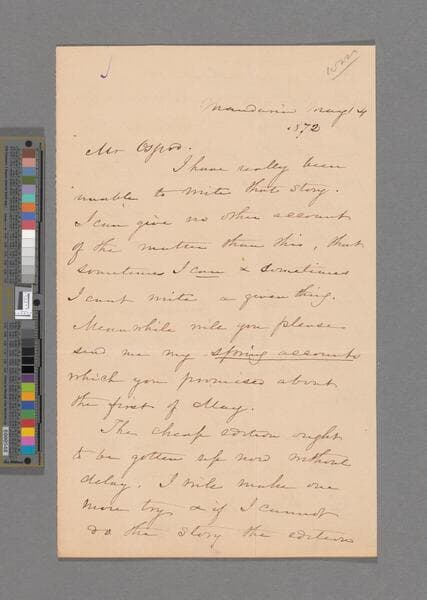 Mandarin May 4
1872
Mr Osgood.
I have really been
unable to write that story.
I can give no other account
of the matter than this, that
sometimes I can & sometimes
I cant write a given thing.
Meanwhile will you please
send me my spring accounts
which you promised about
the first of May.
The cheap edition ought
to be gotten up now without
delay. I will make one
more try & if I cannot
do the story the edition